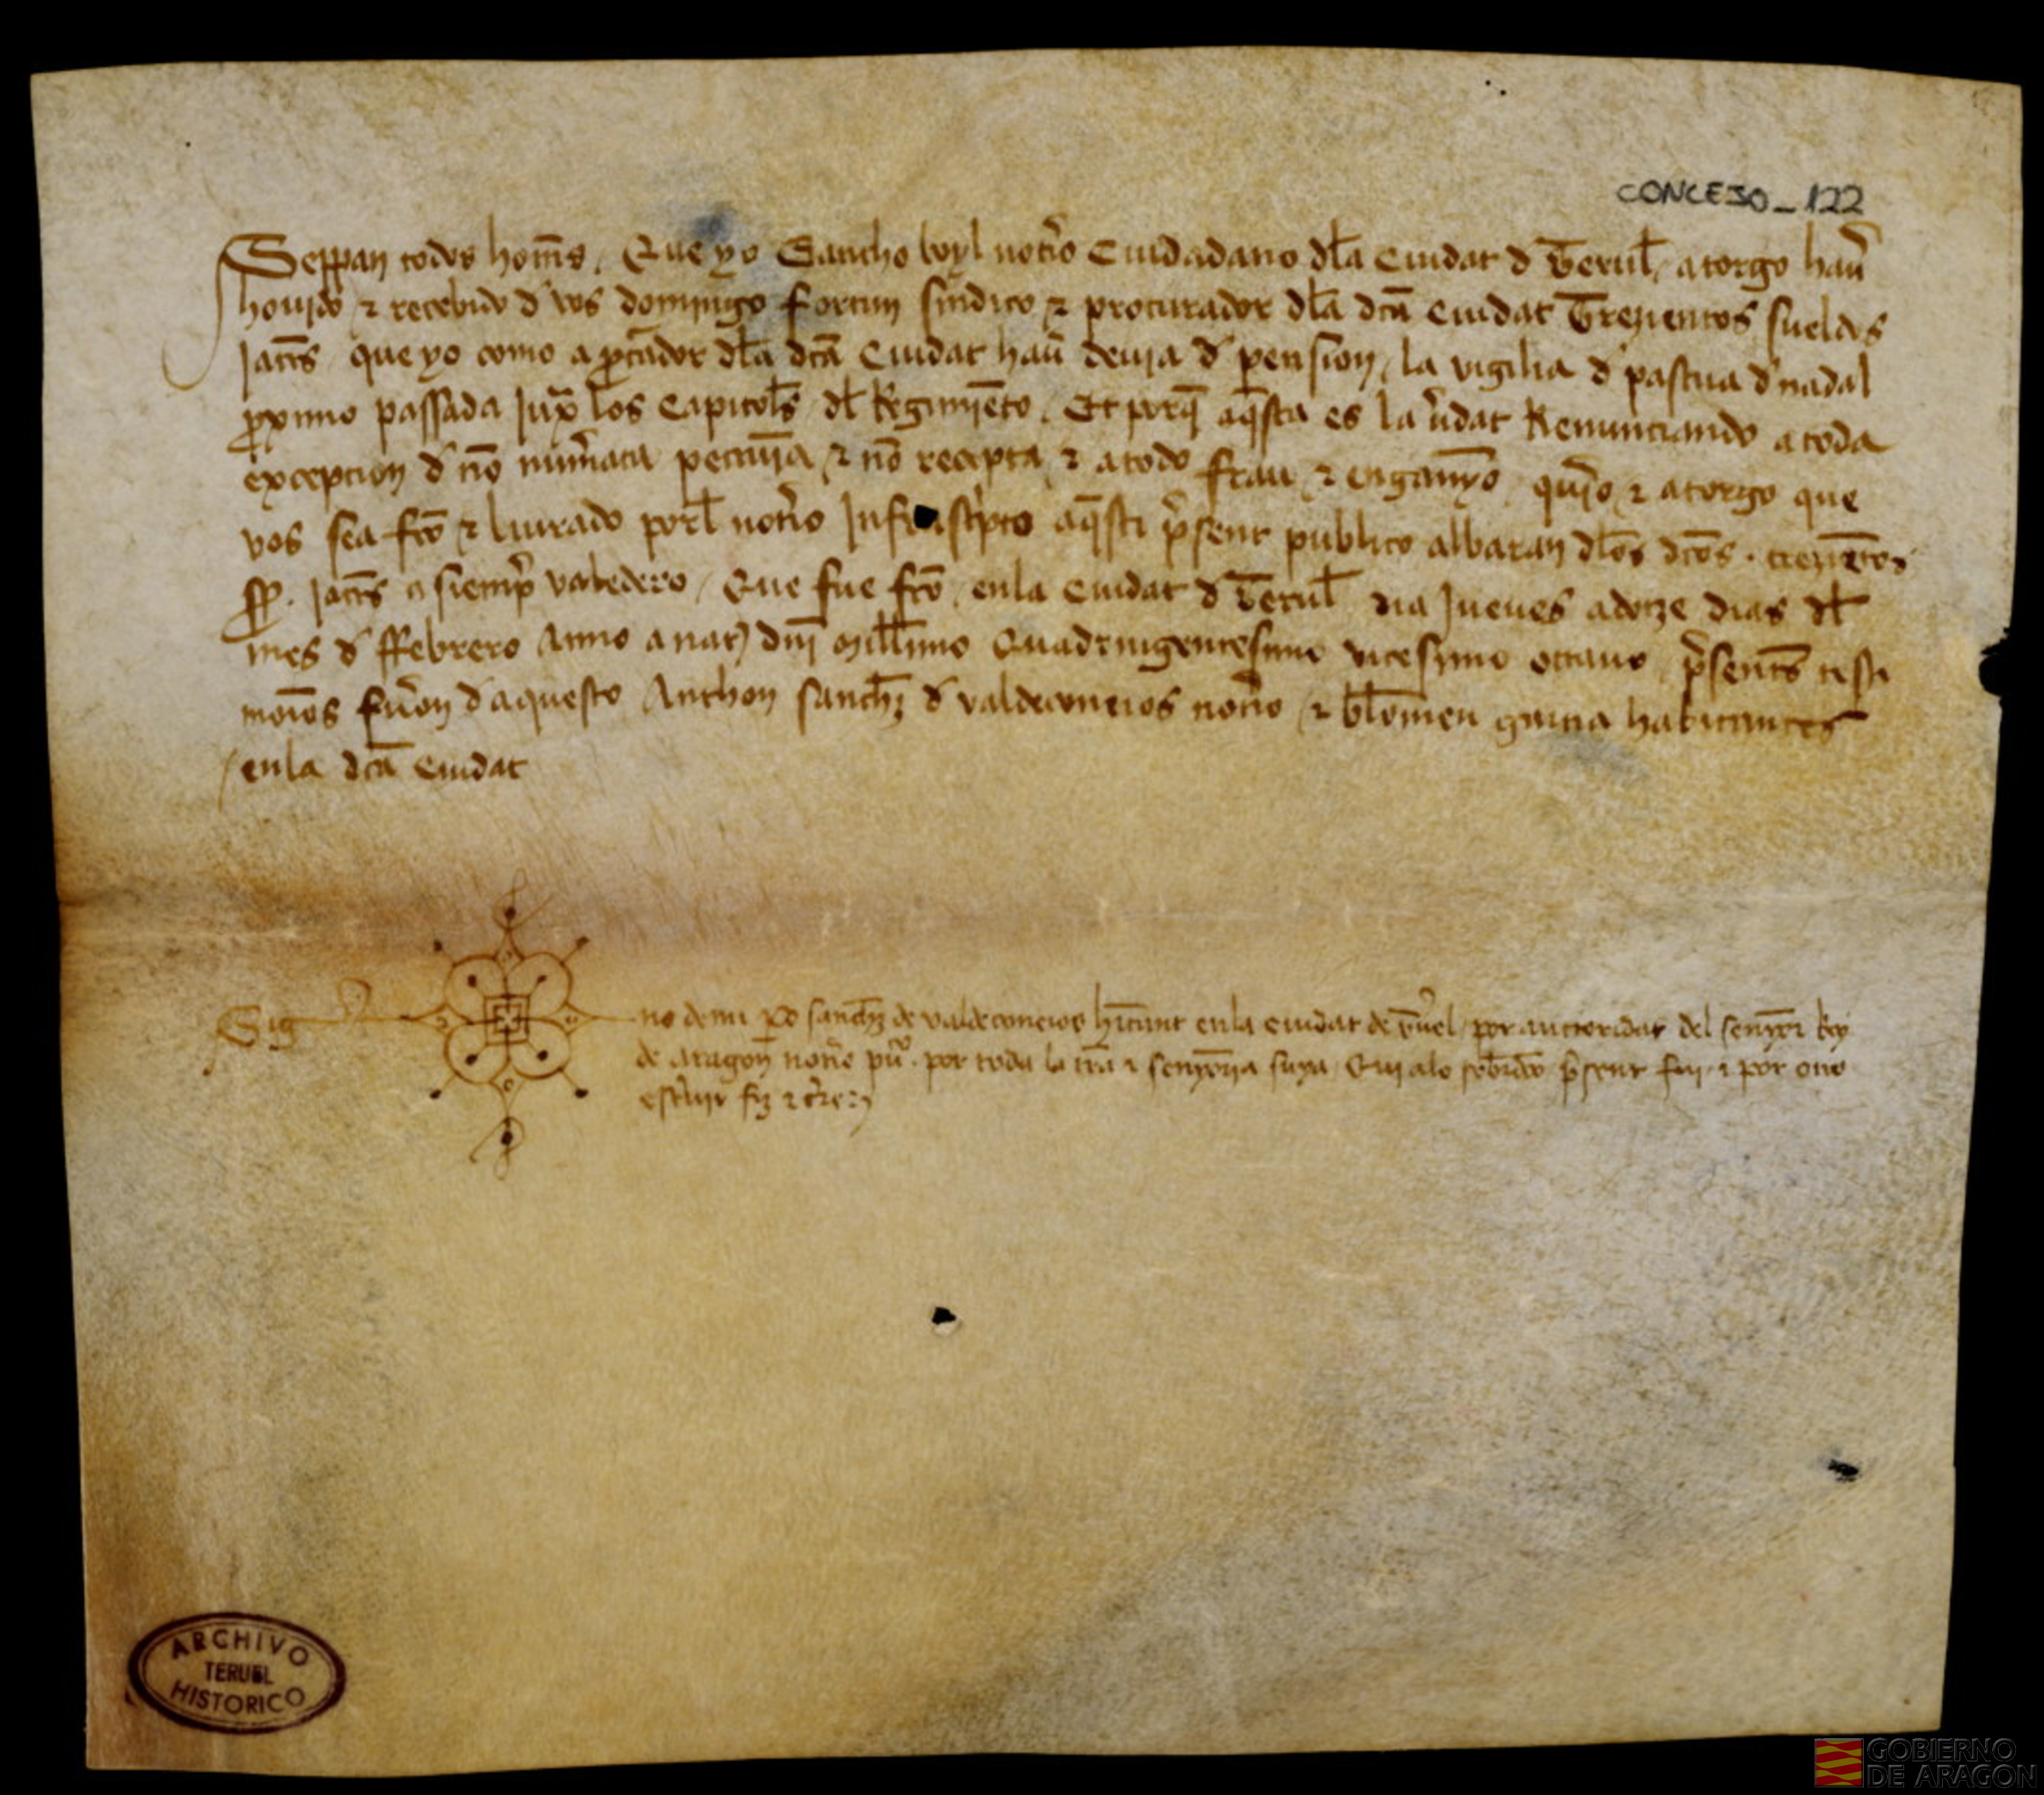 CONCEJO_122
Seppan todos hom̃s. Que yo Sancho notĩo Ciudadano dl̃a Ciudat d' Teruel̃, atorgo hau̾
houido & recebido d' vos domingo fortun sindico & procurador dl̃a dcã Ciudat Trezientos sueldos
Jacc̃s que yo como a dl̃a dcã Ciudat hau̾ deuia d' pension, la vigilia d' pascua d' nadal
p̃ximo passada Jux̃ los Capitol̃s dl̃ Regimiẽto. Et porq̃ aq̃sta es la u̾dat Renunciando a toda
excepcion d' nõ num̾ata pecuñia & nõ recepta & a todo frau & enganỹo qui̾o & atorgo que
vos sea fcõ & liurado porl̃ notĩo Infrasc̾pto aq̃sti p̾sent publico albaran dl̃os dcõs. treziẽtos
ss̃. Jacc̃s a siemp̾ valedero, Que fue fcõ, en la Ciudat d' Teruel̃ dia Jueues a dotze dias dl̃
mes d' ffebrero Anno a nat̃ dnĩ Mill̃imo Quadringentesimo vicesimo octauo, p̾sent̃s testi
monĩos fu̾on d'aquesto Anthon sanch̃z d' valdeconeios notĩo, & bl̃omeu garcia habitantes
en la dcã Ciudat
Sig no de mi sanch̃z de valdeconeios hĩtant en la Ciudat de T̾uel, por auctoridat del senyõr Rey
de aragoñ notĩo pu̾o. por toda la tr̃a & senyoria suya, Qui a lo sob̃rdco p̾sent fuy & por otro
esc̾uir fiz
ARCHIVO
TERUEL
HISTORICO
GOBIERNO
DE ARAGON